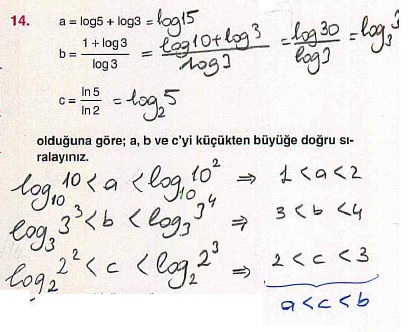 14. a = log5 + log3 = log15
b = (1 + log3)/(log3) = (log10 + log3)/(log3) = (log30)/(log3) = log₃3
c = (ln5)/(ln2) = log₂5
olduğuna göre; a, b ve c'yi küçükten büyüğe doğru sı-
ralayınız.
log₁₀10 < a < log₁₀10² ⇒ 1 < a < 2
log₃3³ < b < log₃3⁴ ⇒ 3 < b < 4
log₂2² < c < log₂2³ ⇒ 2 < c < 3
a < c < b